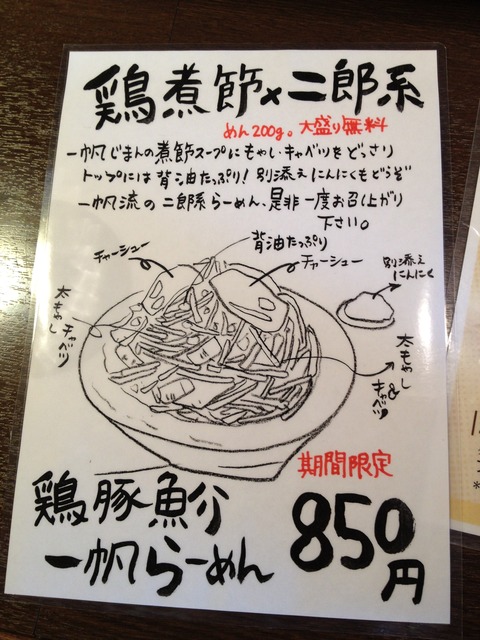 鶏煮節×二郎系
めん200g。大盛り無料
一帆じまんの煮節スープにもやし・キャベツをどっさり
トップには背油たっぷり!別添えにんにくもどうぞ
一帆流の二郎系らーめん、是非一度お召し上がり
下さい。
背油たっぷり
チャーシュー
チャーシュー
別添え
にんにく
太もやし
キャベツ
太もやし
&
キャベツ
期間限定
鶏豚魚介
一帆らーめん
850円